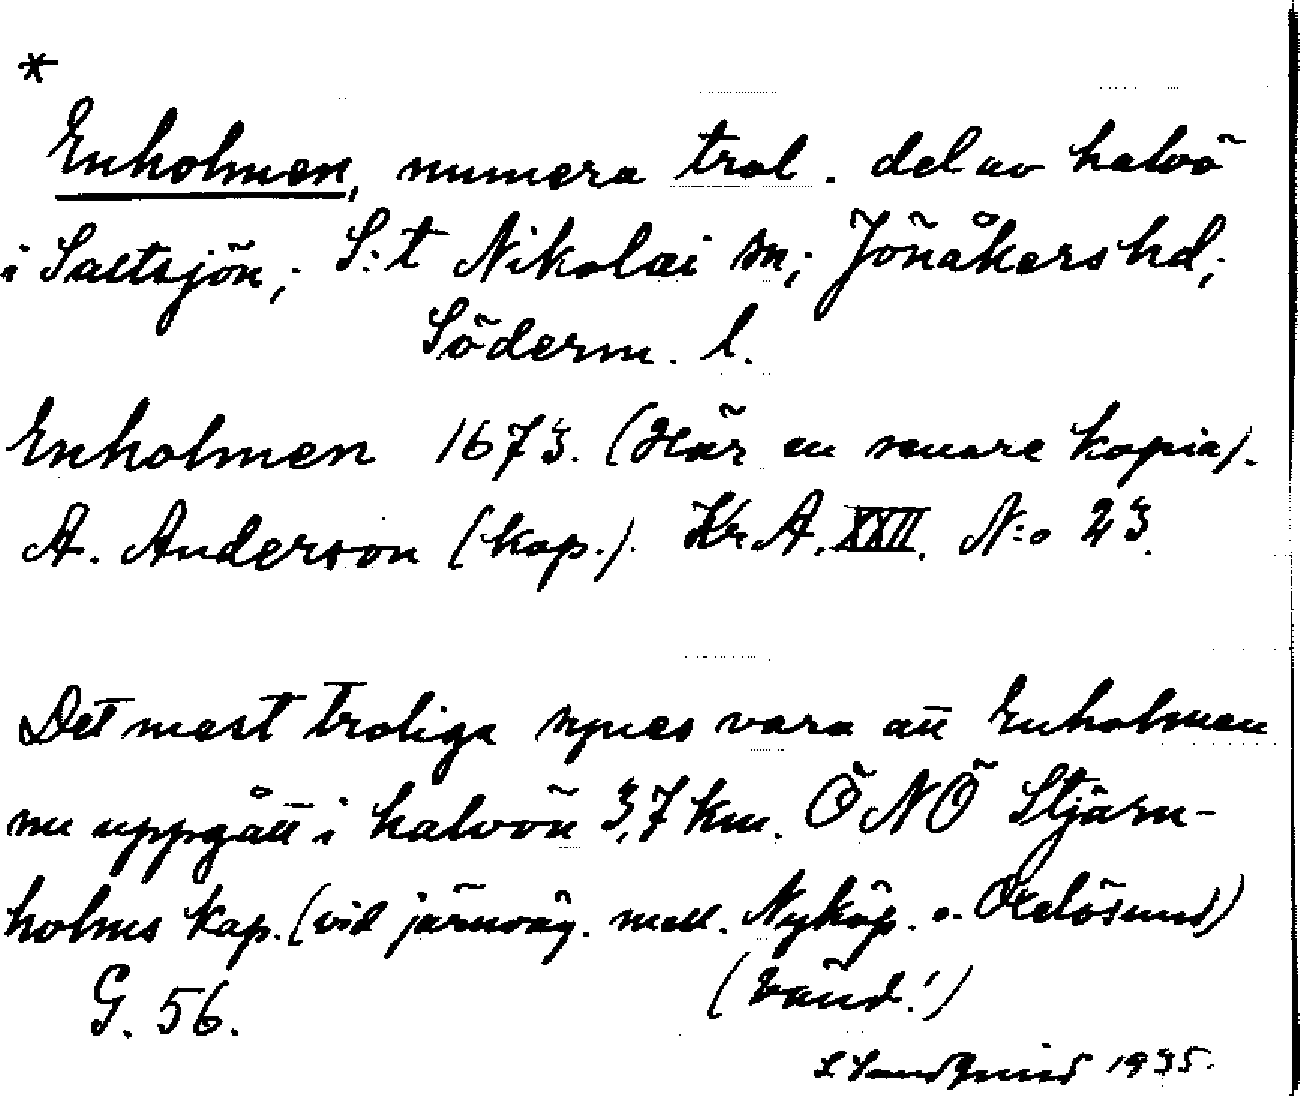 *
Enholmen, numera trol. del av halvö
i Saltsjön; S:t Nikolai sn; Jönåkers hd;
Söderm. l.
Enholmen 1673. (Här en senare kopia).
A. Anderson (kop.). Kr. A. XXII. N:o 23.
Det mest troliga synes vara att Enholmen
nu uppgått i halvön 3,7 km. ÖNÖ Stjärn-
holms kap. (vid järnväg. mell. Nyköp. o. Oxelösund)
G. 56.
(Vänd!)
1935.